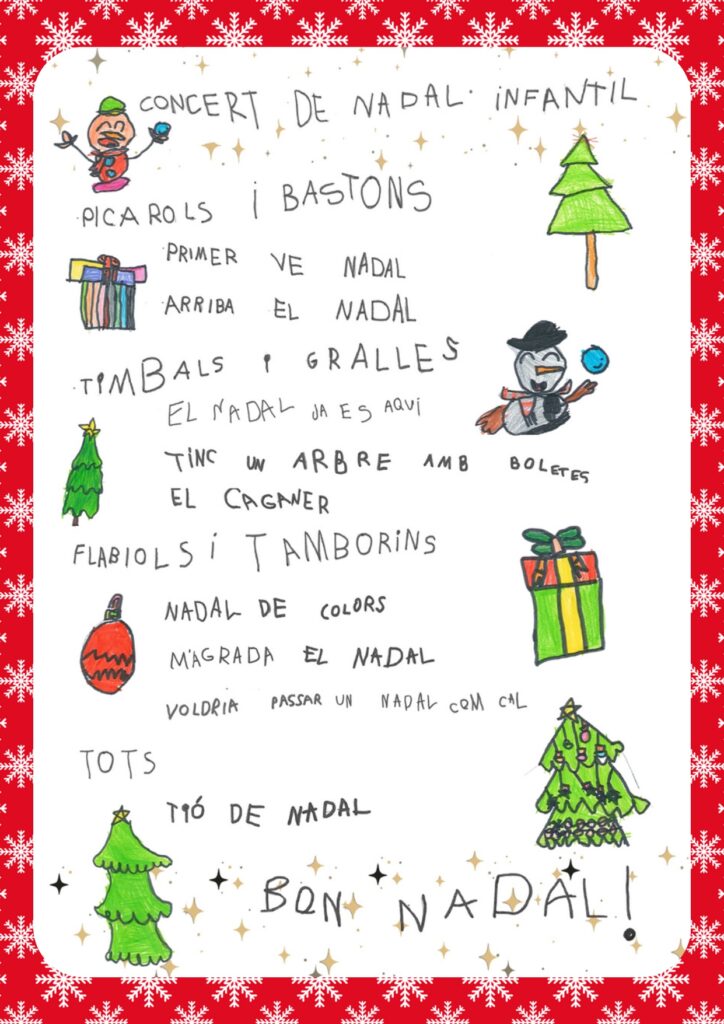 CONCERT DE NADAL INFANTIL
PICAROLS i BASTONS
PRIMER VE NADAL
ARRIBA EL NADAL
TiMBALS i GRALLES
EL NADAL JA ES AQUÍ
TINC UN ARBRE AMB BOLETES
EL CAGANER
FLABIOLS i TAMBORiNS
NADAL DE COLORS
M'AGRADA EL NADAL
VOLDRIA PASSAR UN NADAL COM CAL
TOTS
TIÓ DE NADAL
BON NADAL!